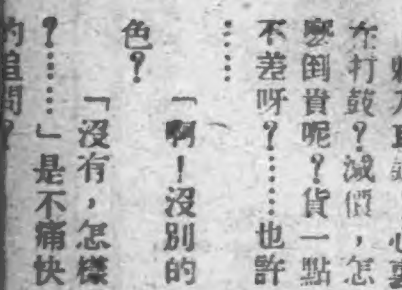 心裏
在打鼓？減價，怎
麽倒貴呢？貨一點
不差呀？……也許
……
「啊！沒別的
色？
「沒有，怎樣
？……」是不痛快
的追問？